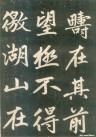 疇在其前
望極不得
徹湖山在